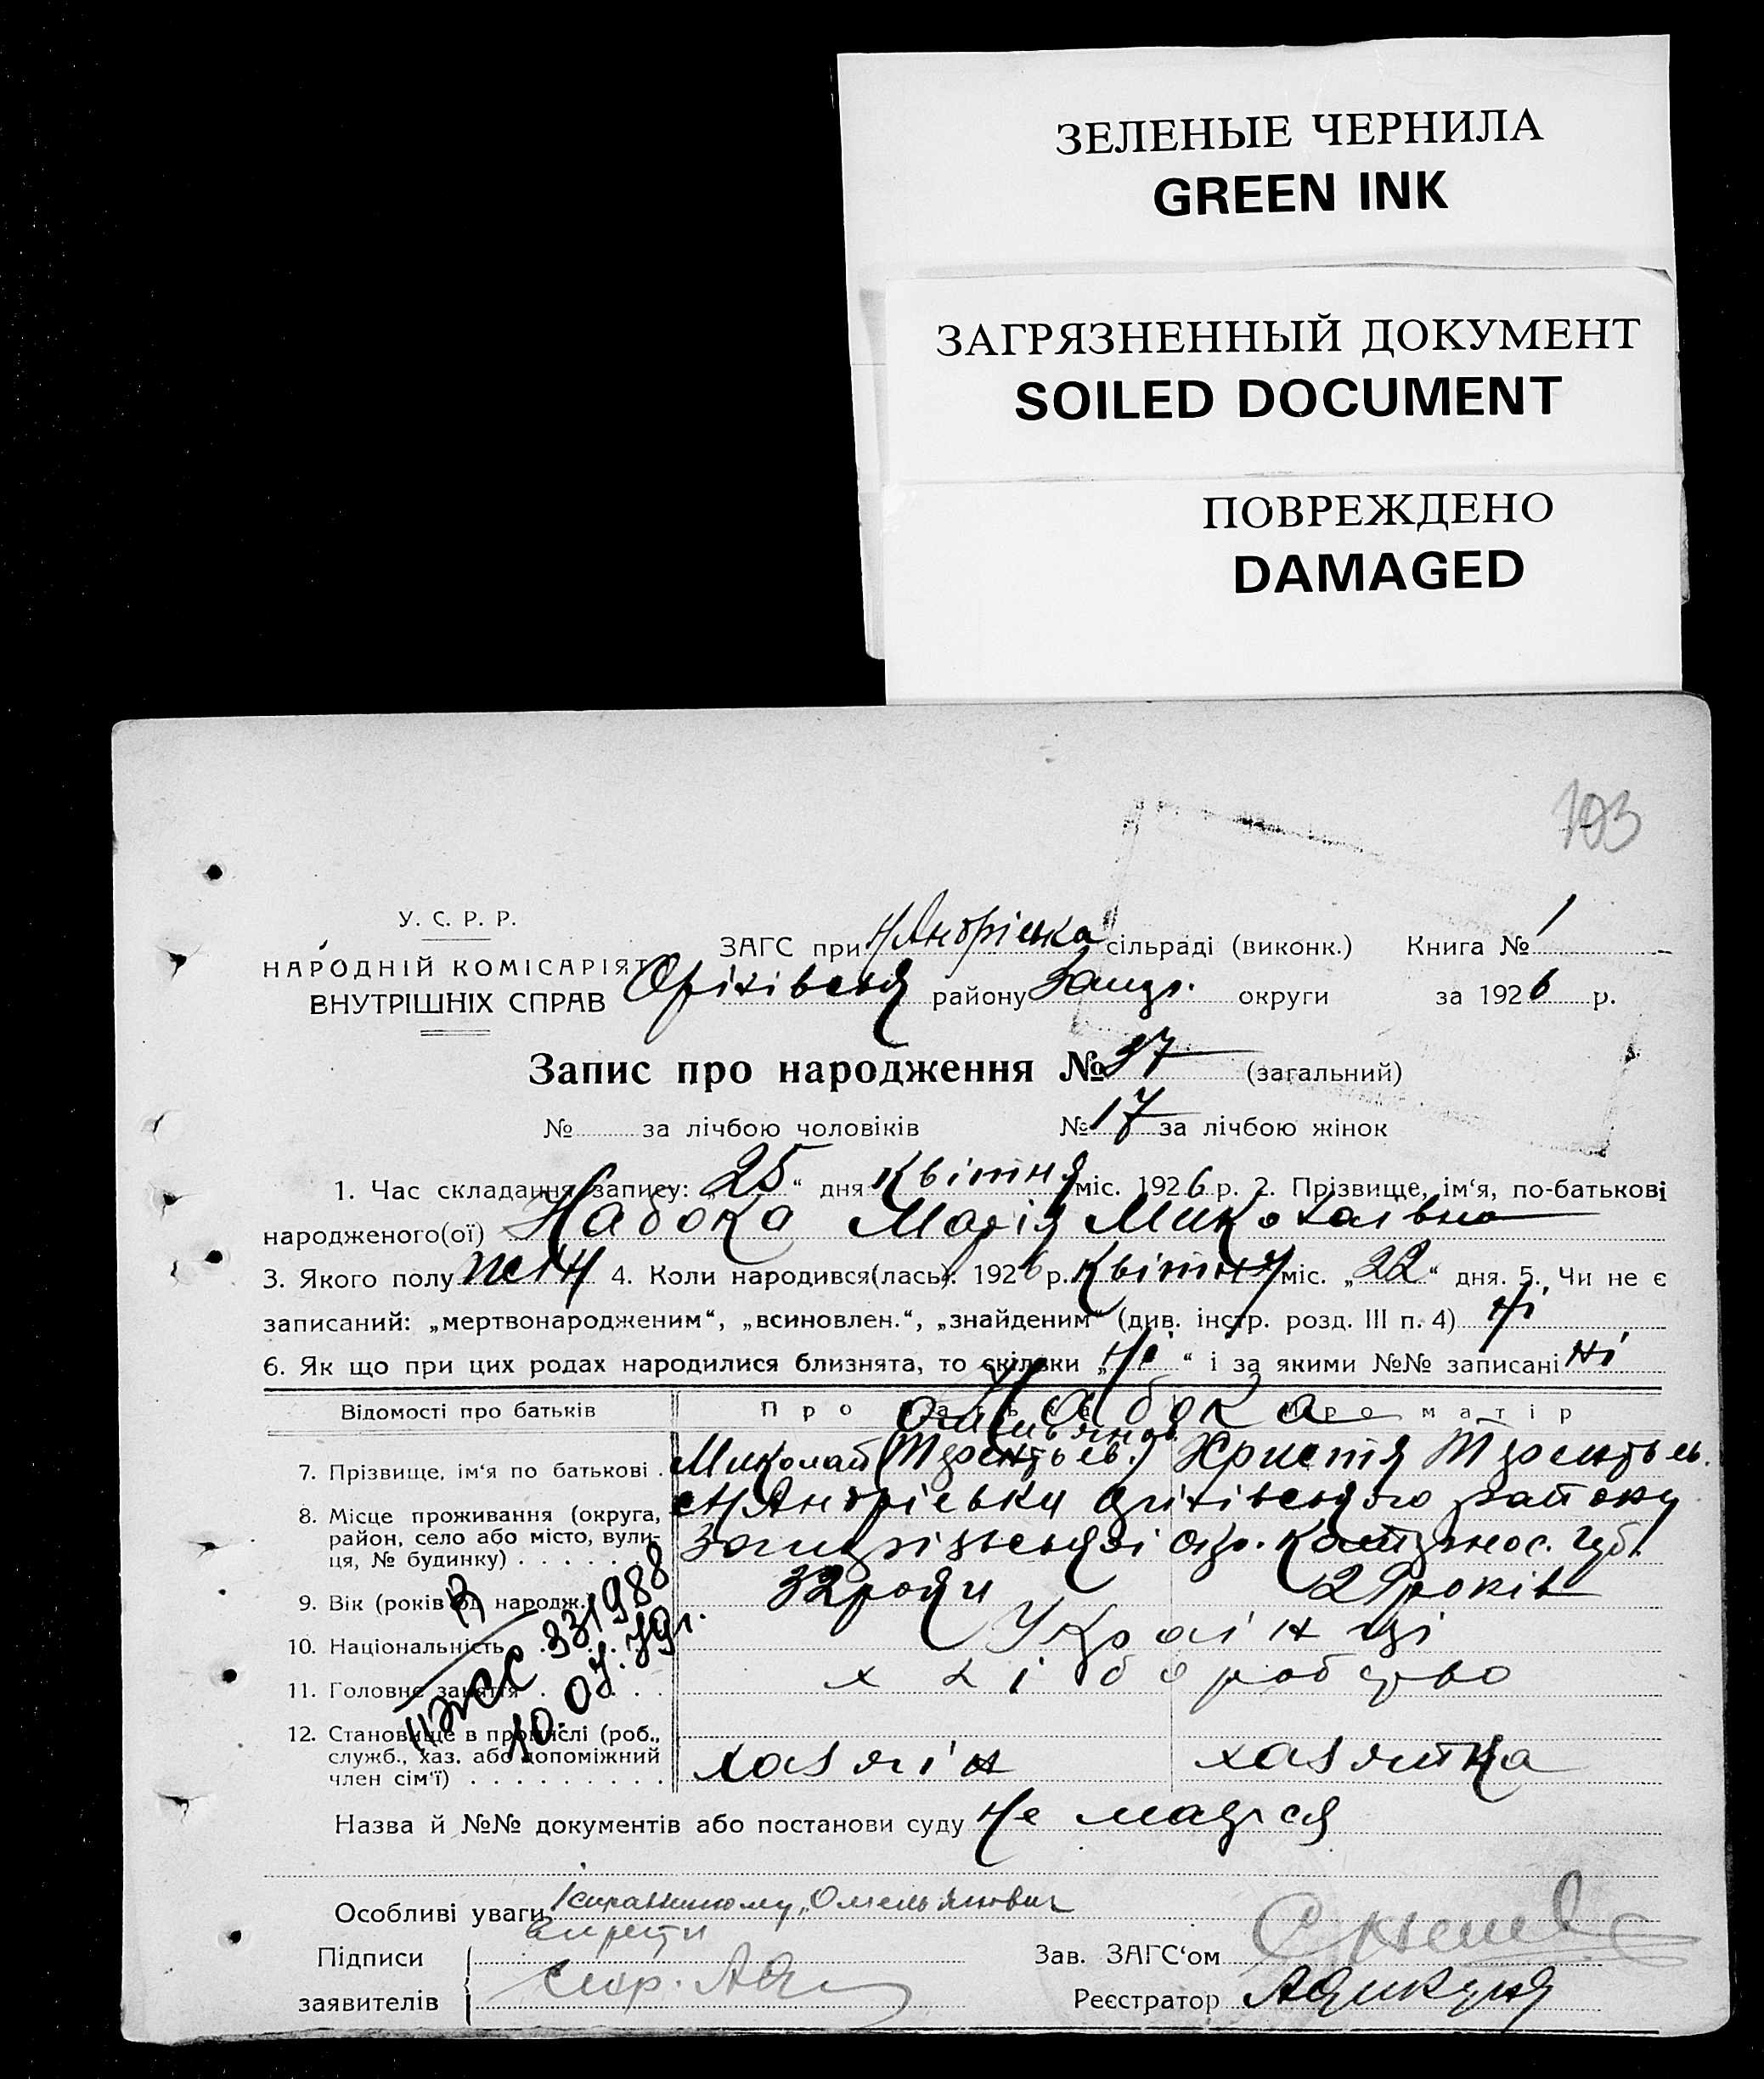 ЗЕЛЕНЫЕ ЧЕРНИЛА
GREEN INK
ЗАГРЯЗНЕННЫЙ ДОКУМЕНТ
SOILED DOCUMENT
ПОВРЕЖДЕНО
DAMAGED
103
У. С. Р. Р.
НАРОДНІЙ КОМІСАРІЯТ
ВНУТРІШНІХ СПРАВ
ЗАГС при Н Андріївка сільраді (виконк.) Книга № 1
Оріхівськ району Запор. округи за 1926 р.
Запис про народження № 37 (загальний)
№ за лічбою чоловіків № 17 за лічбою жінок
1. Час складання запису: „25“ дня Квітня міс. 1926 р. 2. Прізвище, ім‘я, по-батькові
народженого(ої) Набока Марія Миколаївна
3. Якого полу жін 4. Коли народився(лась): 1926 р. Квітня міс. „22“ дня. 5. Чи не є
записаний: „мертвонародженим“, „всиновлен.“, „знайденим“ (див. інстр. розд. III п. 4) Ні
6. Як що при цих родах народилися близнята, то скільки „Ні“ і за якими №№ записані Ні
Відомості про батьків Про батька Про матір
Набока
7. Прізвище, ім‘я по батькові . Миколай (Терентьев.) Христя Терентьев.
8. Місце проживання (округа, район, село або місто, вулиця, № будинку) . . . . . .
с Н Андрієвки Оріхівського району
Запорізської окр. Катернос. губ.
9. Вік (років од народж.) 32 роки 29 років
10. Національність Українці
11. Головне заняття . . . . хліборобство
12. Становище в промислі (роб., служб., хаз. або допоміжний член сім‘ї) . . . . . . . . .
хазяїн хазяйка
ІІ ЖС 331988
10.07.79г.
Назва й №№ документів або постанови суду Не мається
Особливі уваги „Омельянович
Підписи
заявителів
Зав. ЗАГС‘ом
Реєстратор